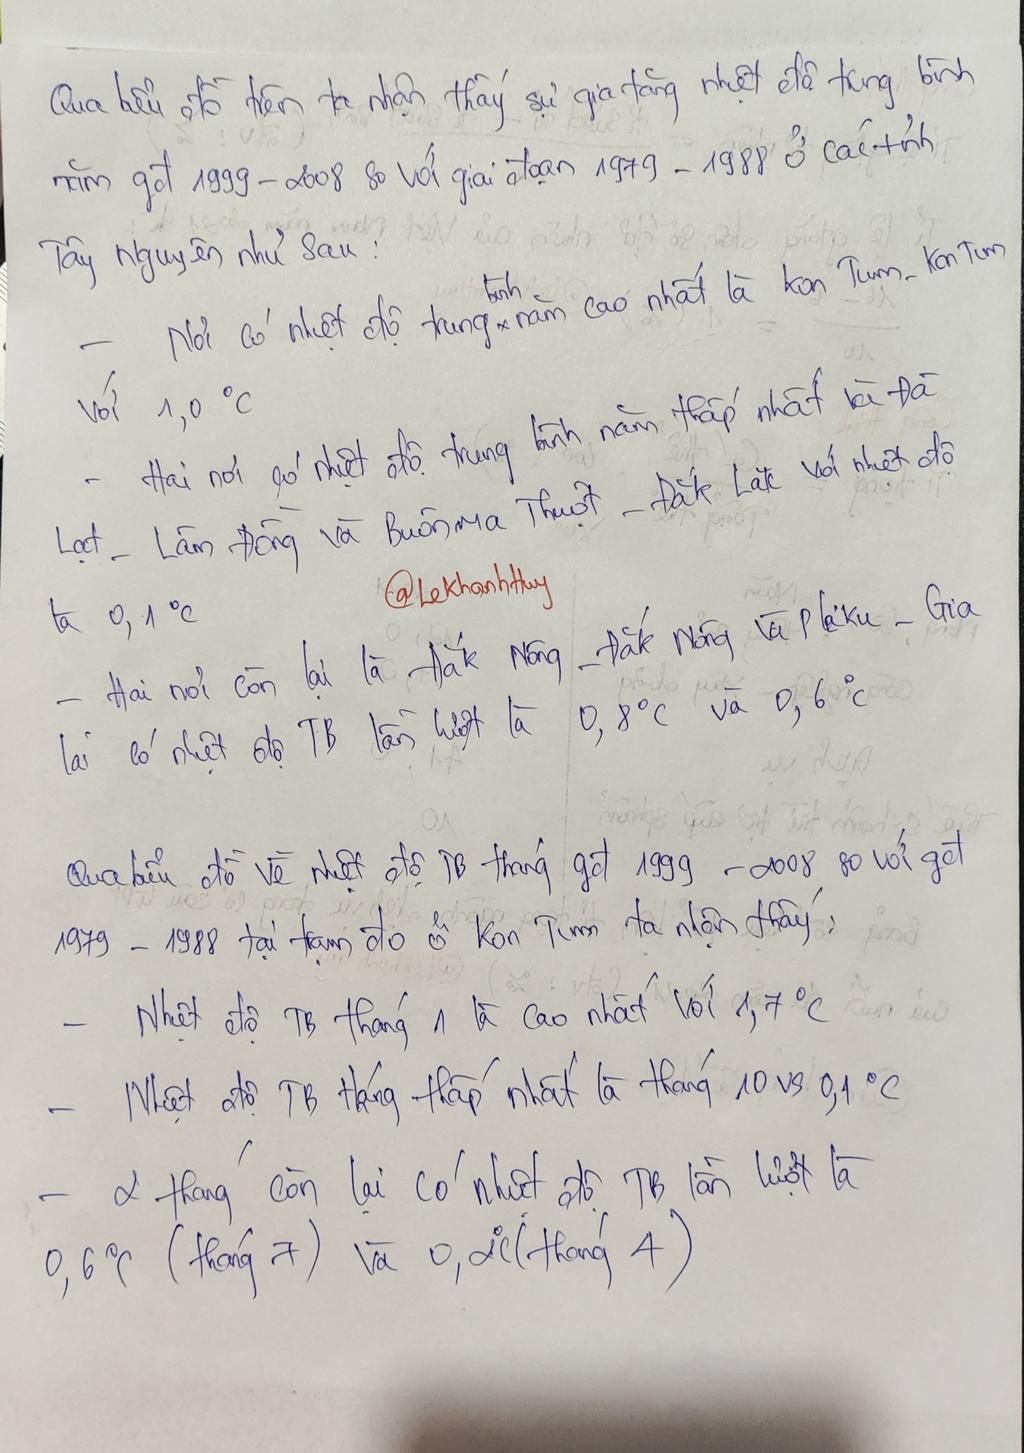 Qua biểu đồ trên ta nhận thấy sự gia tăng nhiệt độ trung bình
năm gđ 1999 - 2008 so với giai đoạn 1979 - 1988 ở các tỉnh
Tây Nguyên như sau:
- Nơi có nhiệt độ trung bình năm cao nhất là Kon Tum - Kon Tum
với 1,0 °C
- Hai nơi có nhiệt độ trung bình năm thấp nhất là Đà
Lạt - Lâm Đồng và Buôn Ma Thuột - Đắk Lắk với nhiệt độ
là 0,1 °C
@LeKhanhHuy
- Hai nơi còn lại là Đắk Nông - Đắk Nông và Pleiku - Gia
lai có nhiệt độ TB lần lượt là 0,8°C và 0,6°C
Qua biểu đồ về nhiệt độ TB tháng gđ 1999 - 2008 so với gđ
1979 - 1988 tại trạm đo ở Kon Tum ta nhận thấy:
- Nhiệt độ TB tháng 1 là cao nhất với 1,7 °C
- Nhiệt độ TB tháng thấp nhất là tháng 10 vs 0,1 °C
- 2 tháng còn lại có nhiệt độ TB lần lượt là
0,6°C (tháng 7) và 0,2°C (tháng 4)